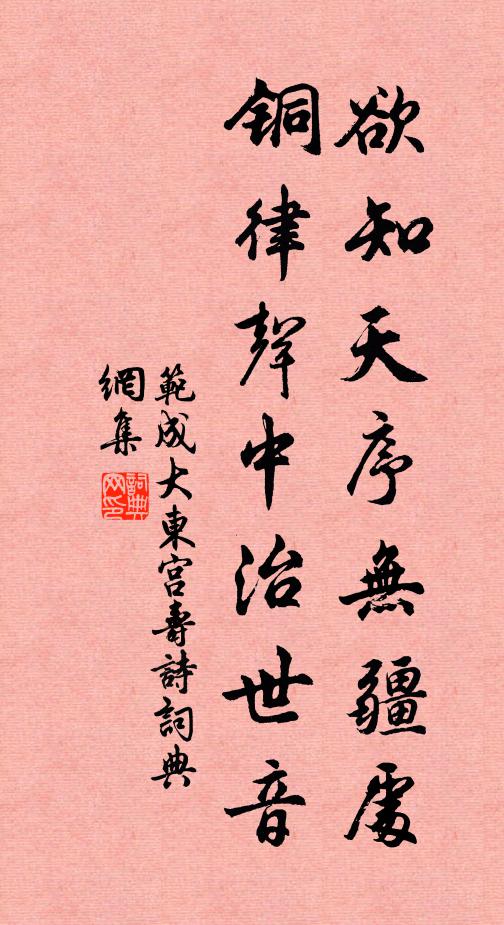 欲知天序無疆處
銅律聲中治世音
範成大東宮壽詩詞典
網集
詞典
网印